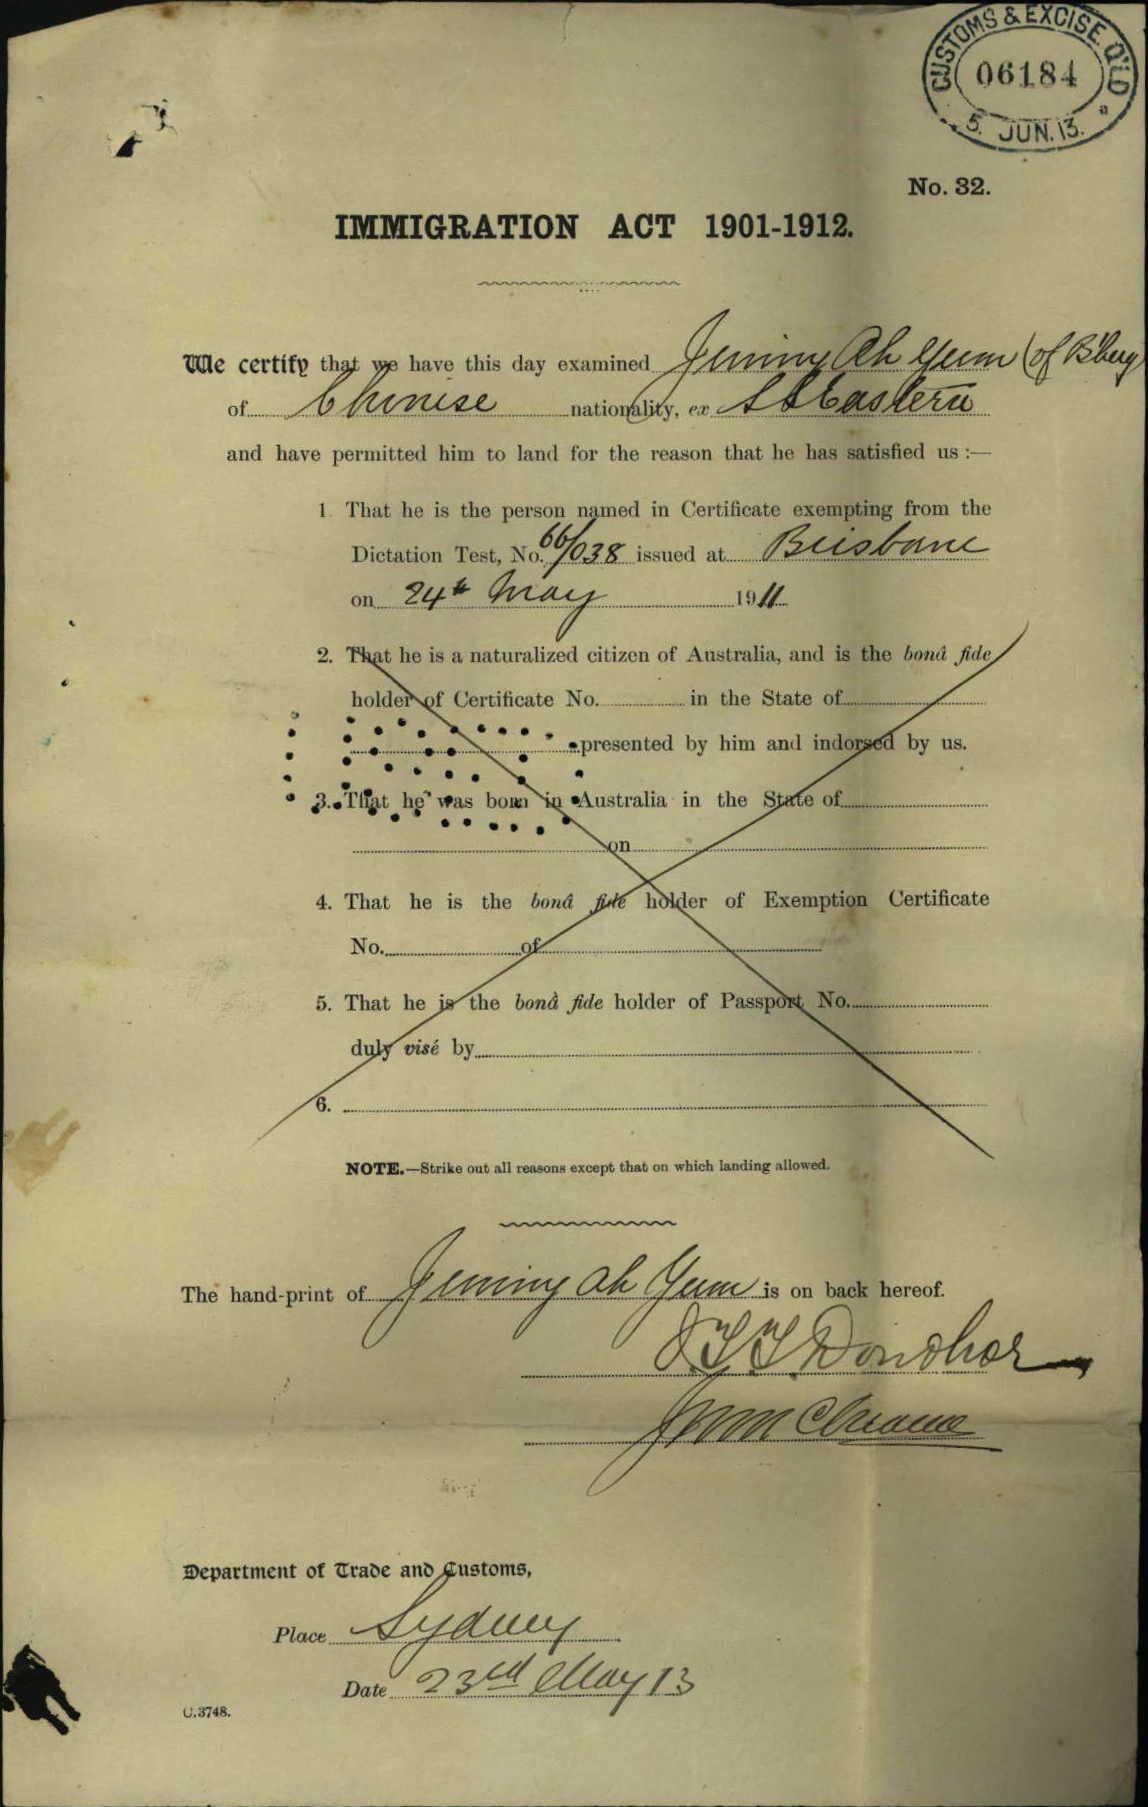 CUSTOMS & EXCISE. Q'LD
06184
5. JUN. 13.
No. 32.
IMMIGRATION ACT 1901-1912.
We certify that we have this day examined Jimmy Ah Yum (of B'berg)
of Chinese nationality, ex SS Eastern
and have permitted him to land for the reason that he has satisfied us :—
1. That he is the person named in Certificate exempting from the
Dictation Test, No. 66/038 issued at Brisbane
on 24th May 1911
2. That he is a naturalized citizen of Australia, and is the bonâ fide
holder of Certificate No. in the State of
presented by him and indorsed by us.
3. That he was born in Australia in the State of
on
4. That he is the bonâ fide holder of Exemption Certificate
No. of
5. That he is the bonâ fide holder of Passport No.
duly visé by
6.
NOTE.—Strike out all reasons except that on which landing allowed.
The hand-print of Jimmy Ah Yum is on back hereof.
J.T.T. Donohoe
Department of Trade and Customs,
Place Sydney
Date 23rd May 13
C.3748.